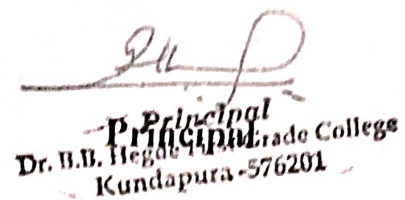 Principal
Principal
Dr. B.B. Hegde First Grade College
Kundapura-576201